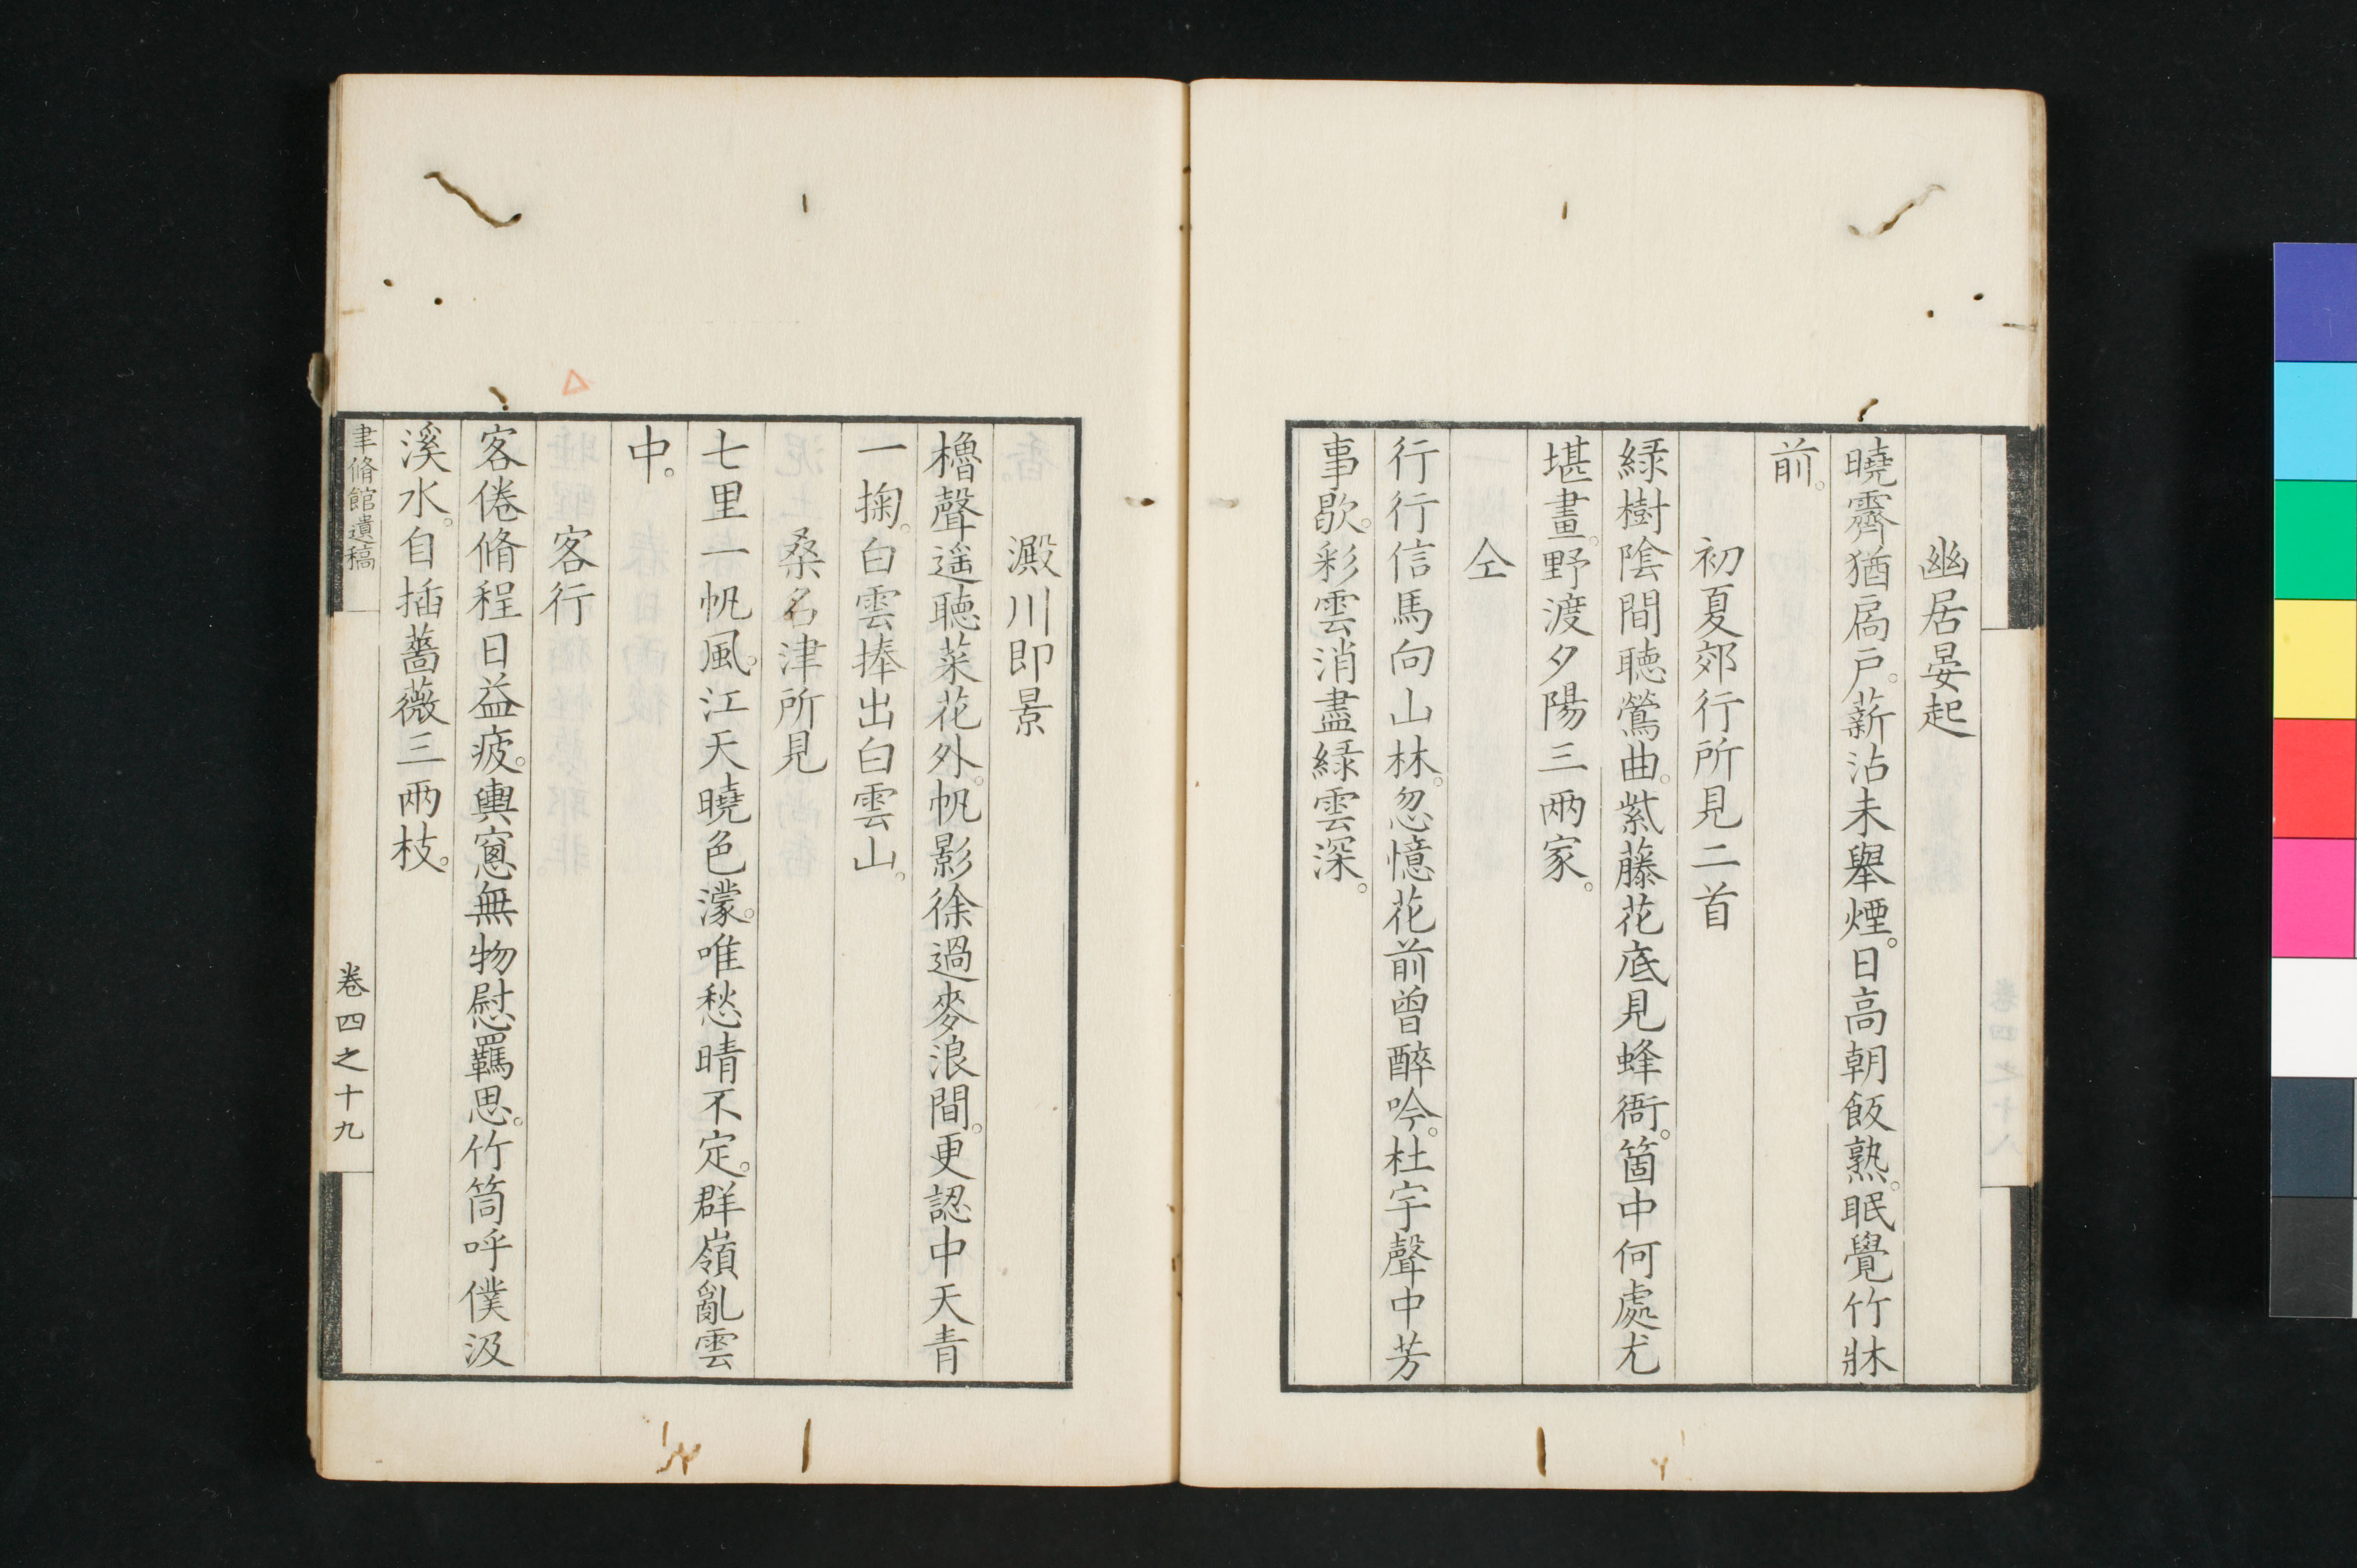 幽居晏起
曉霽猶扃戸。薪沾未舉煙。日高朝飯熟。眠覺竹牀
前。
初夏郊行所見二首
緑樹陰間聴鶯曲。紫藤花底見蜂衙。箇中何處尤
堪畫。野渡夕陽三兩家。
仝
行行信馬向山林。忽憶花前曽醉吟。杜宇聲中芳
事歇。彩雲消盡緑雲深。
澱川即景
櫓聲遥聴菜花外。帆影徐過麥浪間。更認中天青
一掬。白雲捧出白雲山。
桑名津所見
七里一帆風。江天曉色濛。唯愁晴不定。群嶺亂雲
中。
客行
客倦脩程日益疲。輿窻無物慰羈思。竹筒呼僕汲
溪水。自插薔薇三兩枝。
聿脩館遺稿
卷四之十九